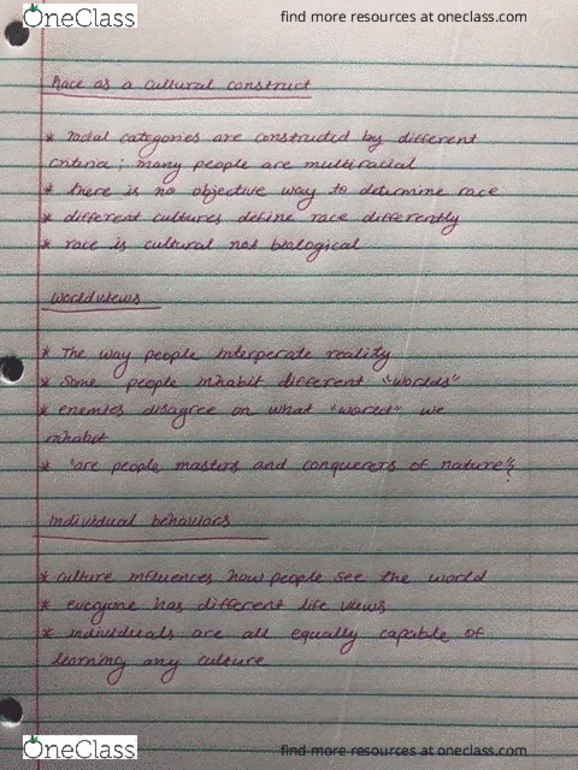 OneClass
find more resources at oneclass.com
Race as a cultural construct
* racial categories are constructed by different
criteria; many people are multiracial
* there is no objective way to determine race
* different cultures define race differently
* race is cultural not biological
Worldviews
* The way people interperate reality
* Some people inhabit different "worlds"
* enemies disagree on what "world" we
inhabit
* "are people masters and conquerers of nature"?
Individual behaviors
* culture influences how people see the world
* everyone has different life views
* individuals are all equally capable of
learning any culture
OneClass
find more resources at oneclass.com